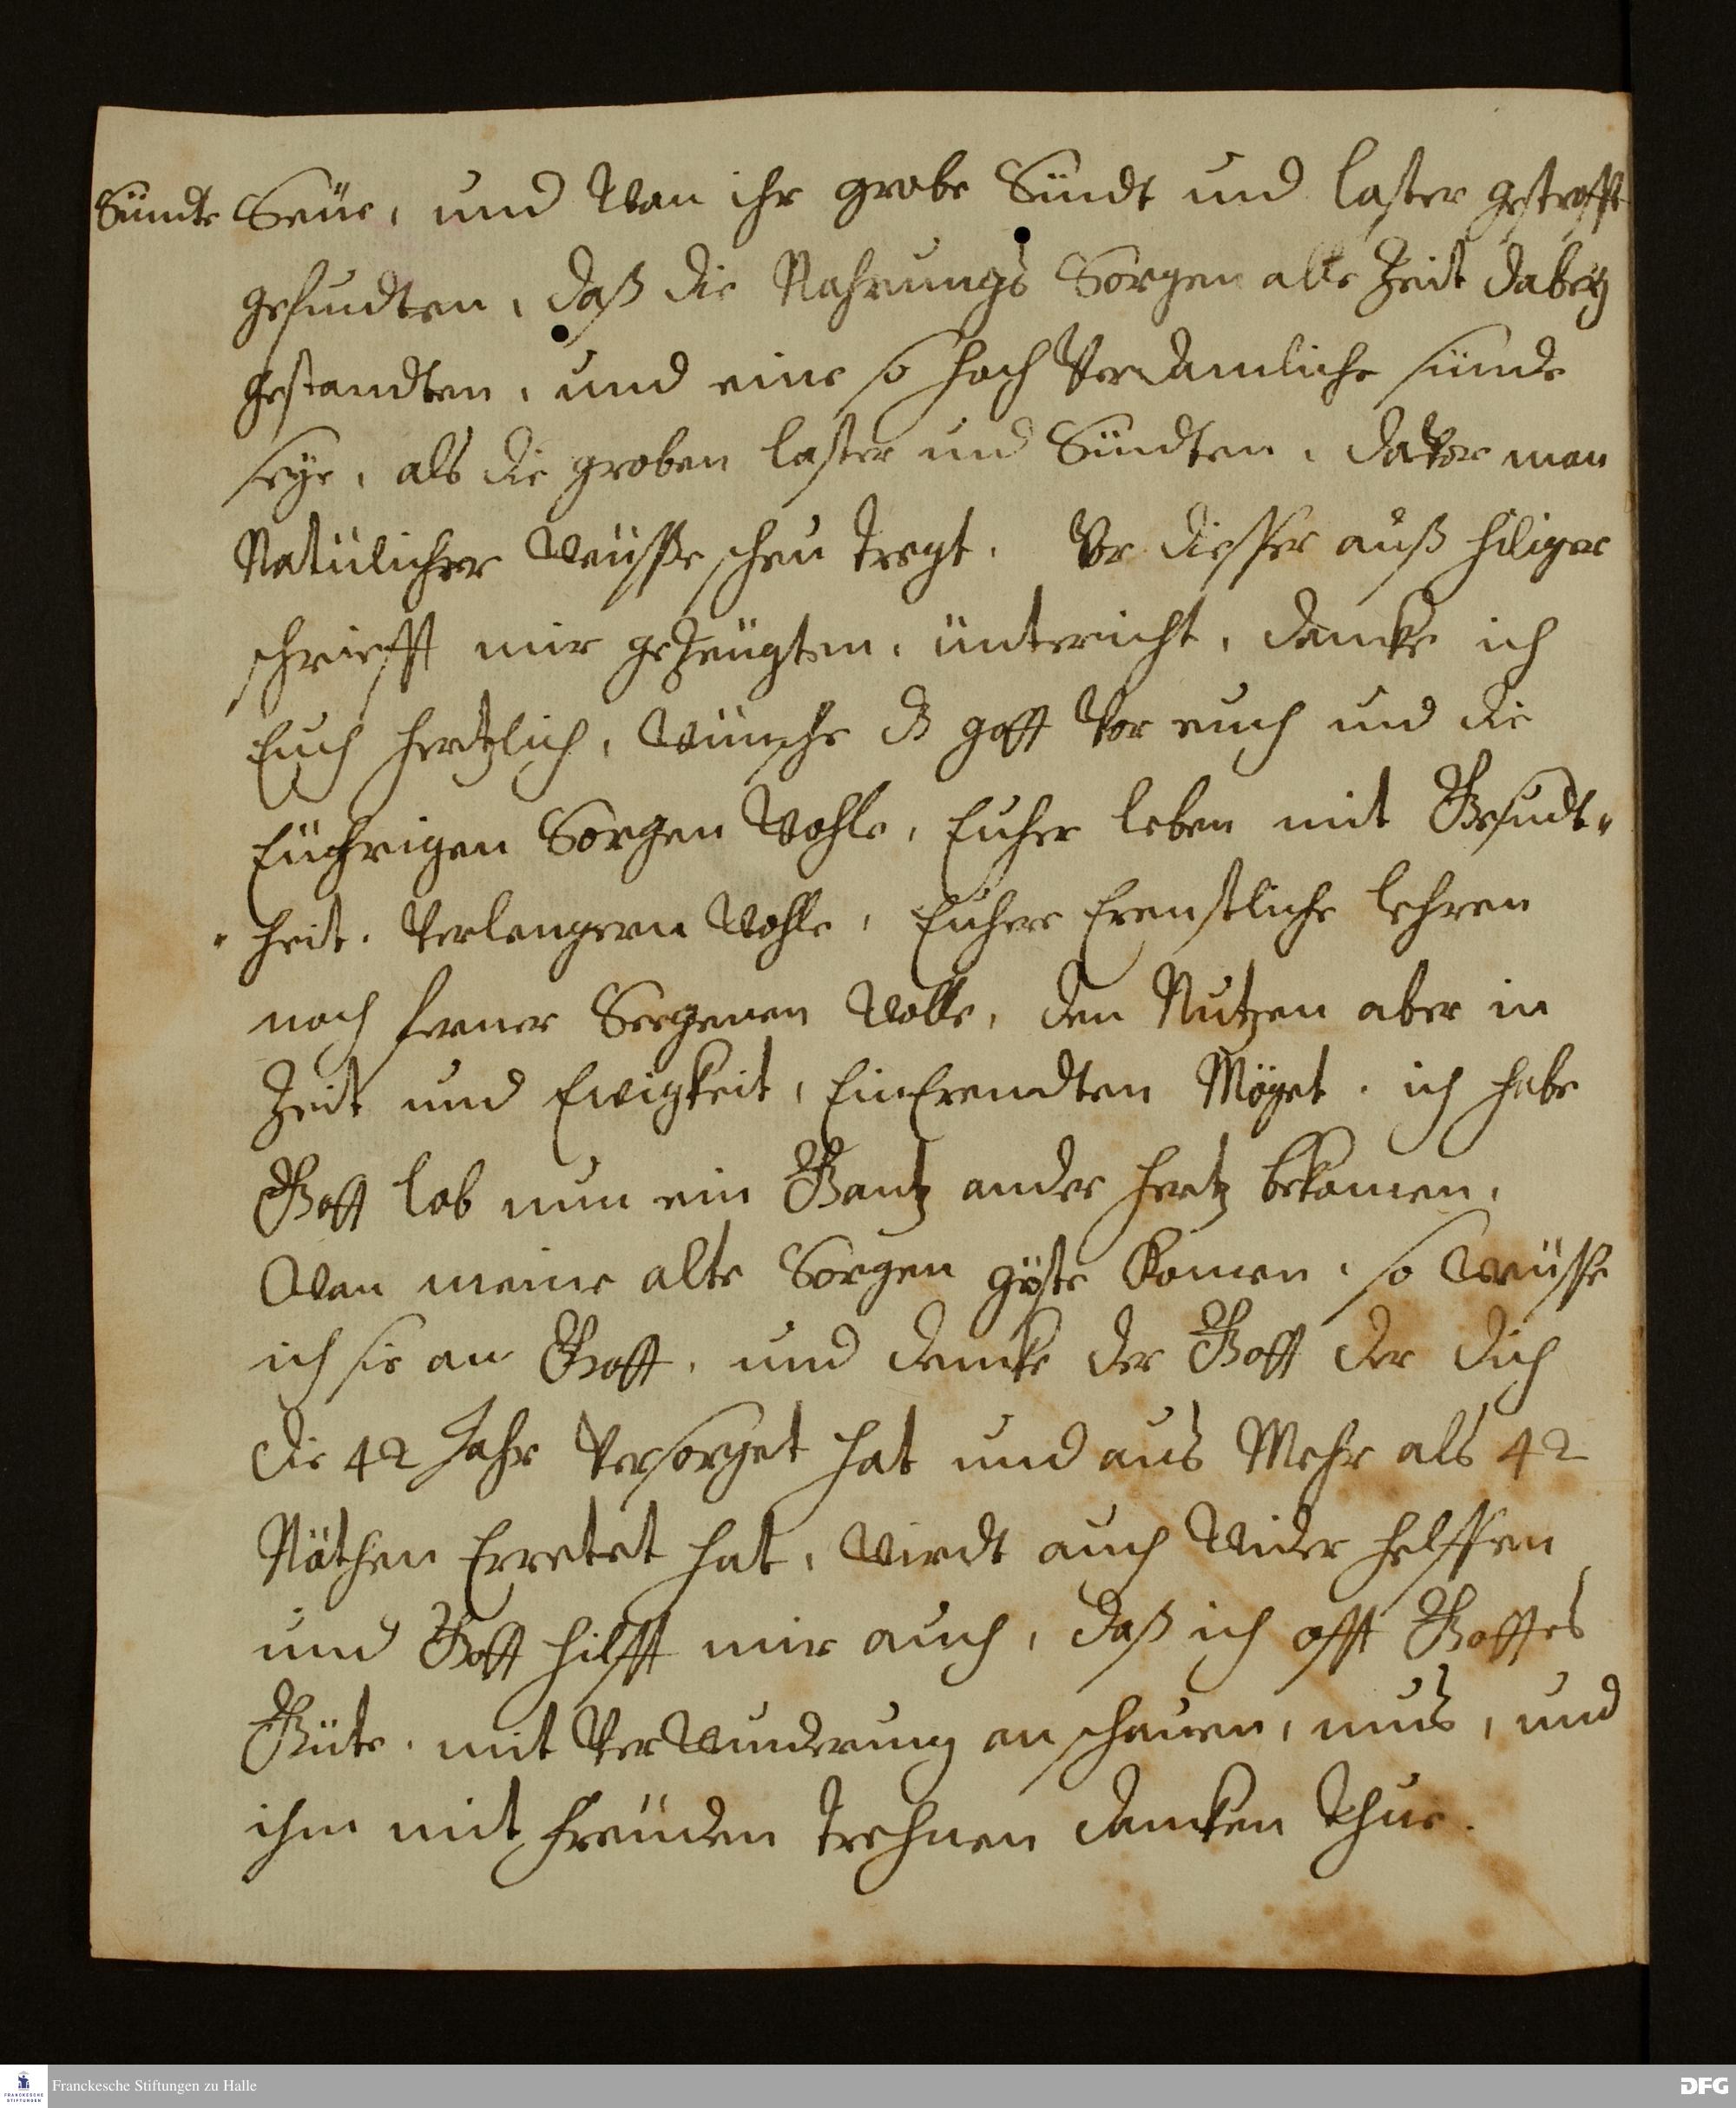 Sündte Seüe, und Wan ihr grobe Sündt und laster gestrafft
gefundten, daß die Nahrungs Sorgen alle Zeit dabey
gestandten, und eine so hoch Verdamliche sünde
seye, als die groben laster und Sündten, daVor man
Natülicher Weüsse scheu tregt. Vor diesser auß hiliger
schriefft mir geZeügten, ünterricht, dancke ich
Euch hertzlich, Wünsche dz gott Vor euch und die
Eüchrigen Sorgen Wohle, Eucher leben mit Gesundt„
„heit. Verlengern Wohle, Euchere Erenstliche lehren
noch ferner Seegenen Wolle, den Nutzen aber in
Zeit und Ewigkeit, EinErendten Möget. ich habe
Gott lob nun ein Gantz ander hertz bekomen.
Wan meine alte Sorgen gäste komen, so Weüsse
ich sie an Gott, und dencke der Gott der dich
die 42 Jahr Versorget hat und aus Mehr als 42
Nöthen Erretet hat, Wirdt auch Wider helffen
und Gott hilfft mir auch, daß ich offt Gottes
Güte, mit VerWunderung an schauen, mus, und
ihm mit freüden trehnen dancken thue.
Franckesche Stiftungen zu Halle
FRANCKESCHE STIFTUNGEN
DFG